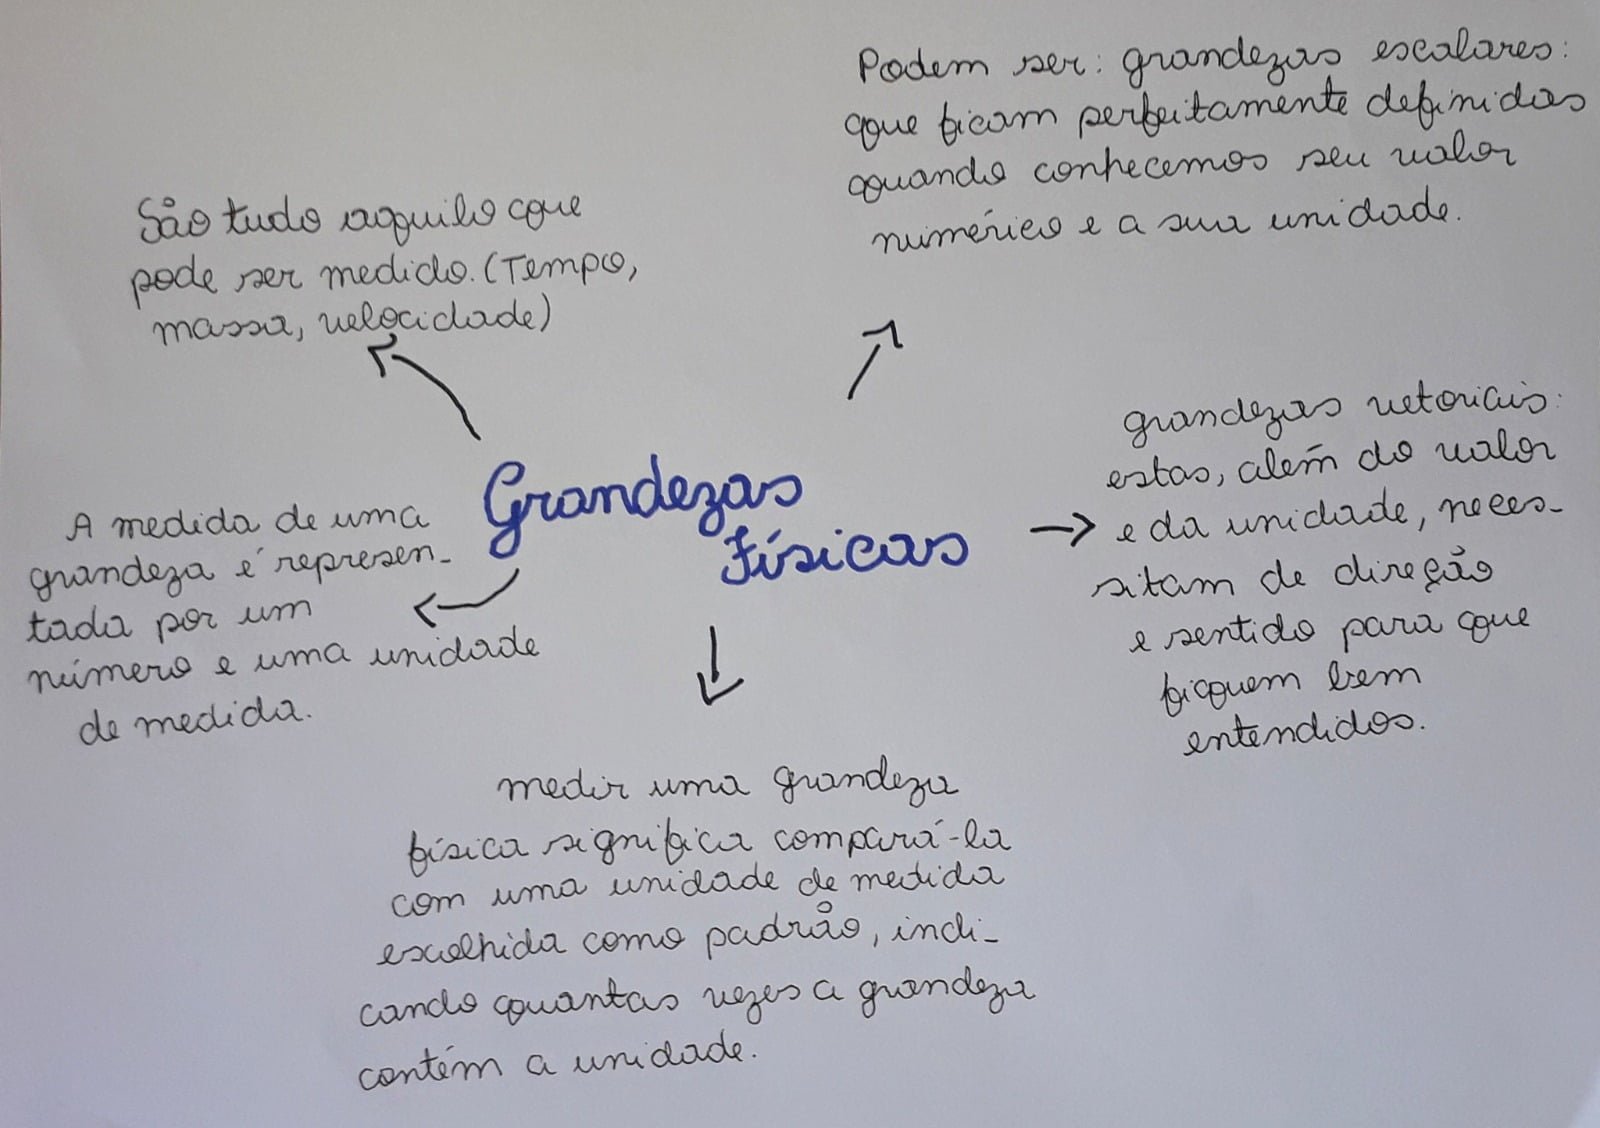 Podem ser: grandezas escalares:
que ficam perfeitamente definidas
quando conhecemos seu valor
numérico e a sua unidade.
São tudo aquilo que
pode ser medido. (Tempo,
massa, velocidade)
Grandezas
Físicas
grandezas vetoriais:
estas, além do valor
e da unidade, neces-
sitam de direção
e sentido para que
fiquem bem
entendidos.
A medida de uma
grandeza é represen-
tada por um
número e uma unidade
de medida.
medir uma grandeza
física significa compará-la
com uma unidade de medida
escolhida como padrão, indi-
cando quantas vezes a grandeza
contém a unidade.